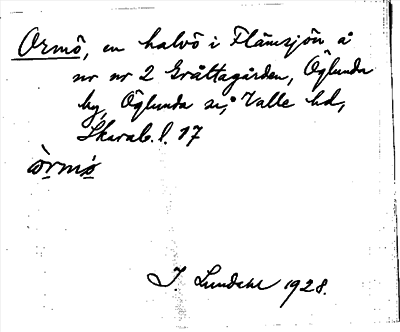 Ormö, en halvö i Flämsjön å
nr nr 2 Gråttagården, Öglunda
by, Öglunda sn, Valle hd,
Skarab. l. 17
òrmö
I. Lundahl 1928.